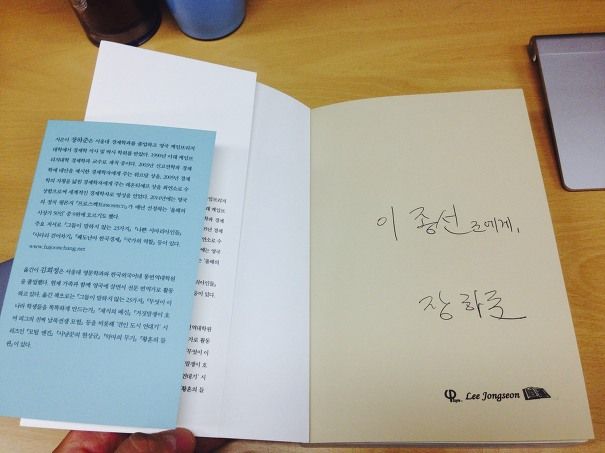 지은이 장하준은 서울대 경제학과를 졸업하고 영국 케임브리지
대학에서 경제학 석사 및 박사 학위를 받았다. 1990년 이래 케임브
리지대학 경제학과 교수로 재직 중이다. 2003년 신고전학파 경제
학에 대안을 제시한 경제학자에게 주는 뮈르달 상을, 2005년 경제
학의 지평을 넓힌 경제학자에게 주는 레온티예프 상을 최연소로 수
상함으로써 세계적인 경제학자로 명성을 얻었다. 2014년에는 영국
의 정치 평론지 『프로스펙트PROSPECT』가 매년 선정하는 '올해의
사상가 50인' 중 9위에 오르기도 했다.
주요 저서로 『그들이 말하지 않는 23가지』, 『나쁜 사마리아인들』,
『사다리 걷어차기』, 『쾌도난마 한국경제』, 『국가의 역할』 등이 있다.
www.hajoonchang.net
옮긴이 김희정은 서울대 영문학과와 한국외국어대 동번역대학원
을 졸업했다. 현재 가족과 함께 영국에 살면서 전문 번역가로 활동
하고 있다. 옮긴 책으로는 『그들이 말하지 않는 23가지』, 『무엇이 이
나라 학생들을 똑똑하게 만드는가』, 『채식의 배신』,
등을 비롯해 '견인 도시 연대기' 시
리즈인 『모털 엔진』, 『사냥꾼의 현상금』, 『악마의 무기』, 『황혼의 들
판』이 있다.
이 종선 조에게,
장 하준
Lee Jongseon